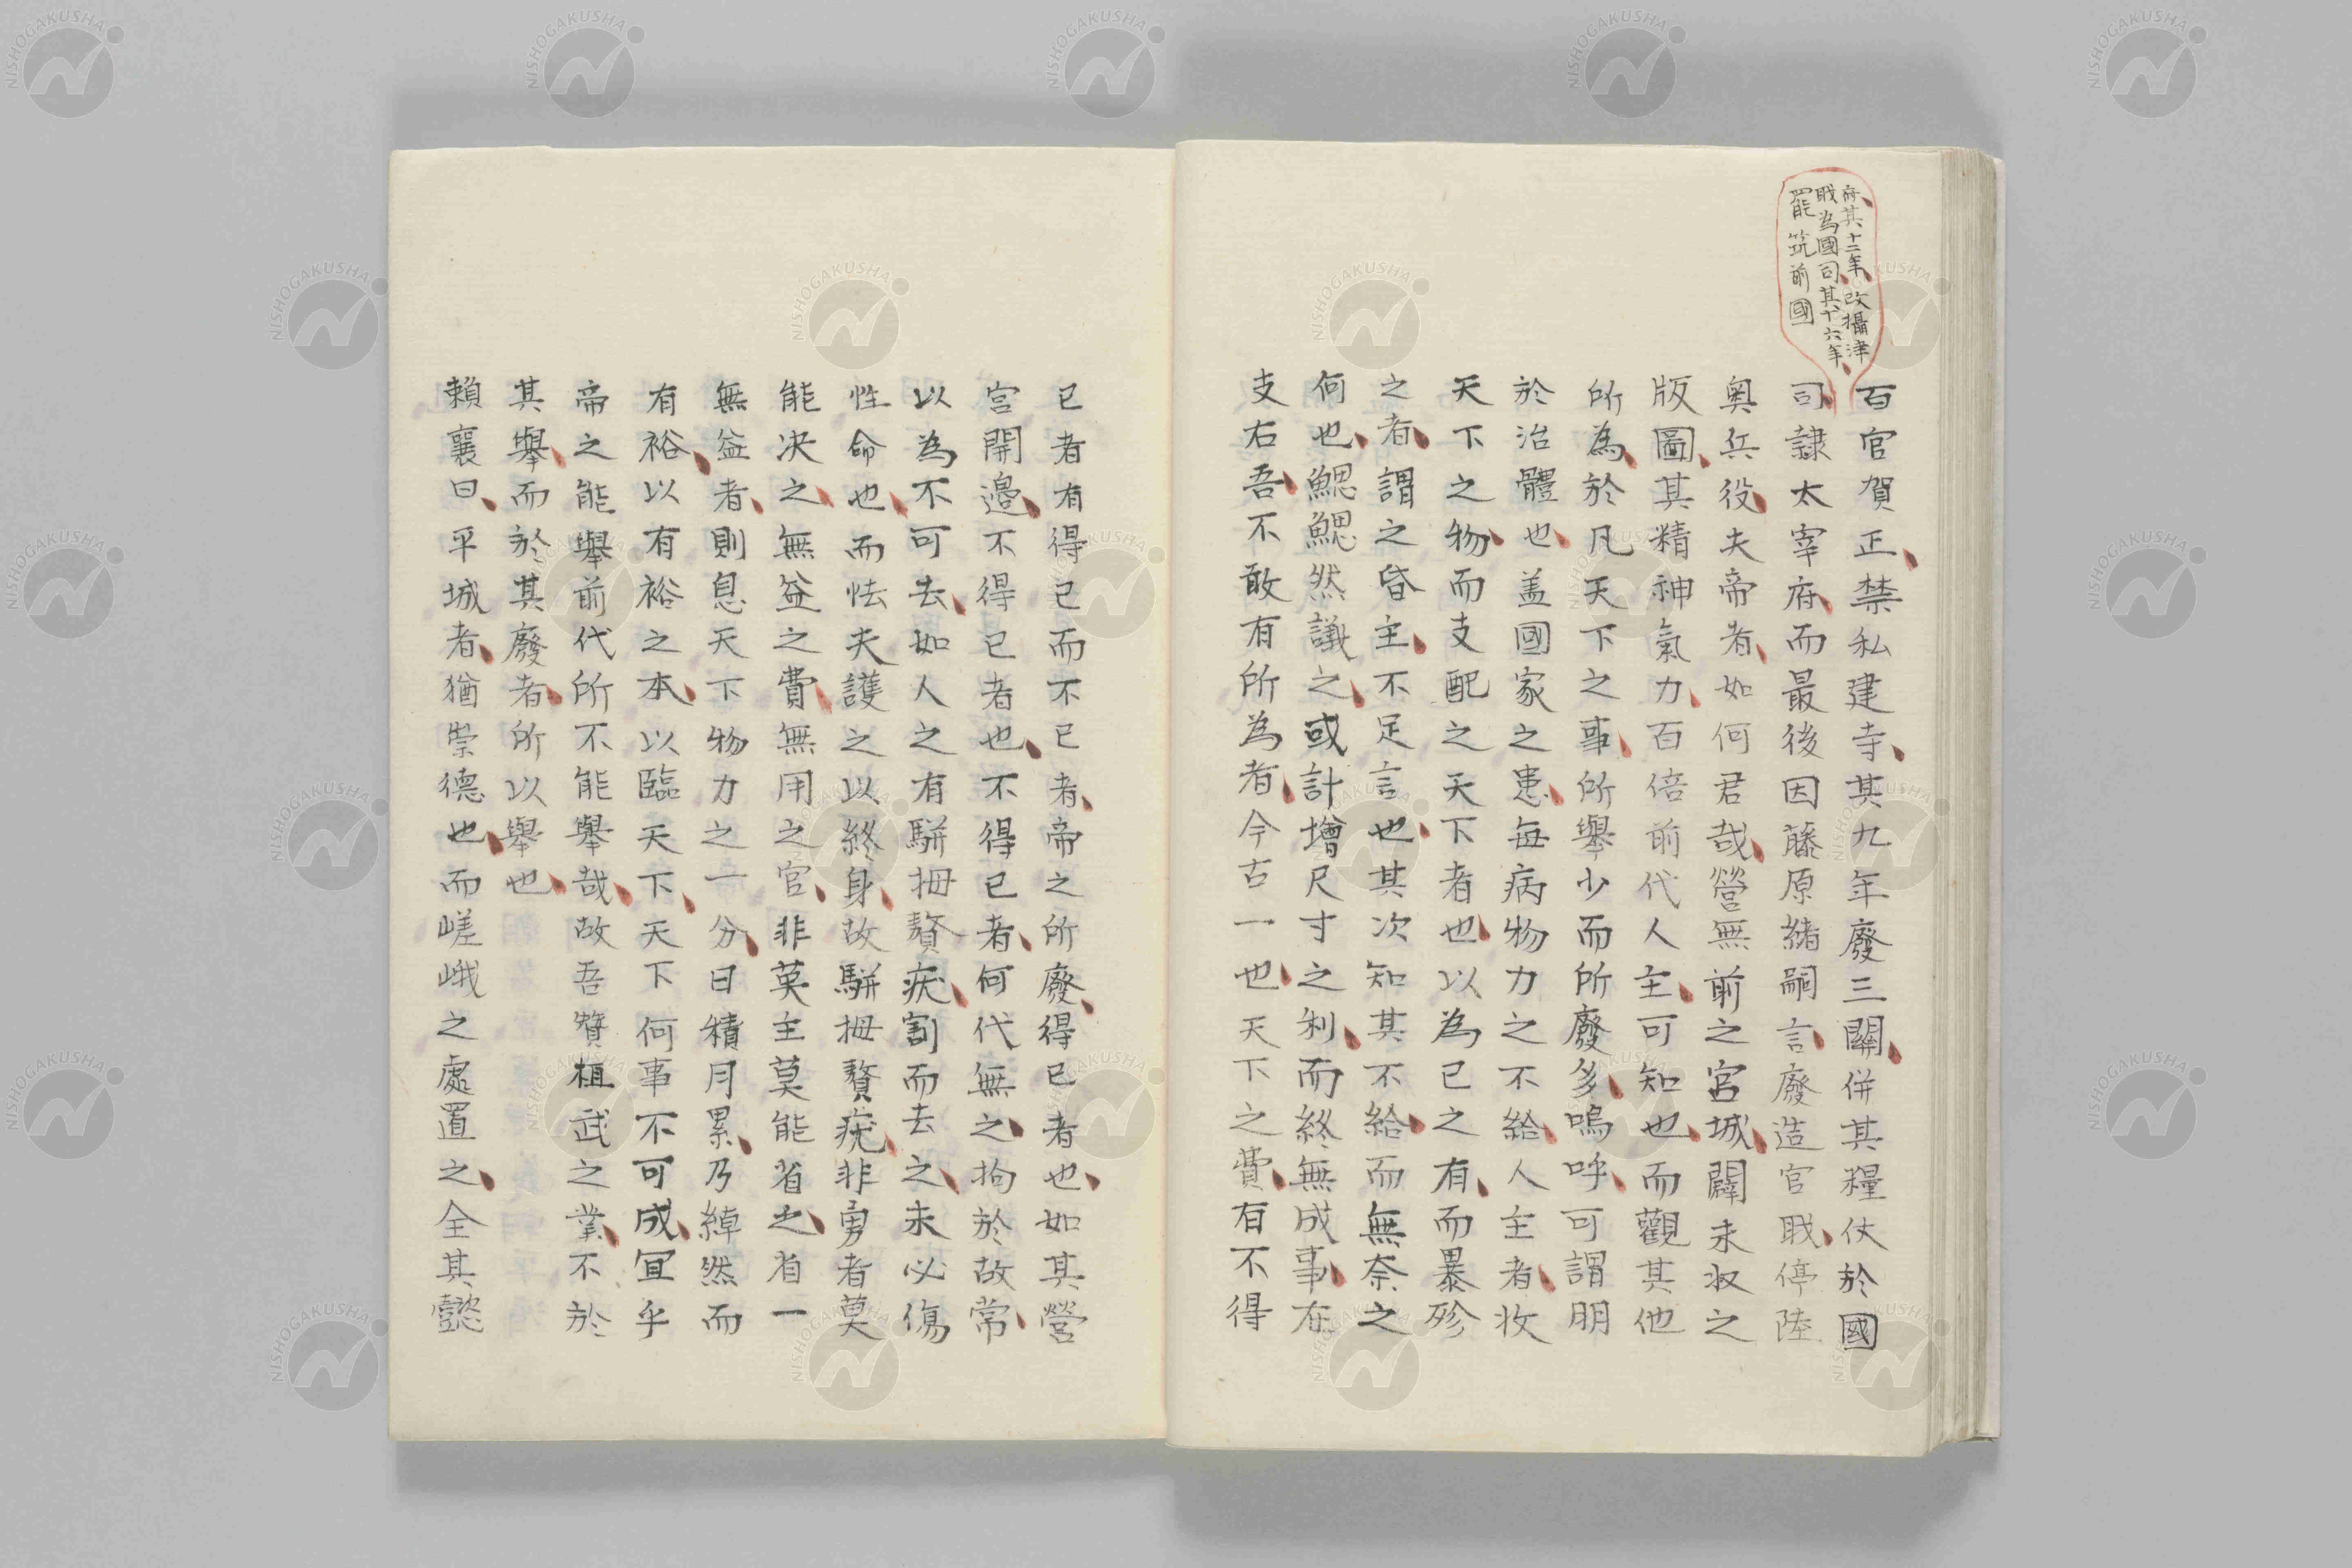 府其十二年改攝津
職為國司其十六年
罷筑前國
百官賀正禁私建寺其九年廢三關併其糧仗於國
司隷太宰府而最後因藤原緒嗣言廢造官職停陸
奥兵役夫帝者如何君哉營無前之宮城闢未收之
版圖其精神氣力百倍前代人主可知也而觀其他
所為於凡天下之事所舉少而所廢多嗚呼可謂明
於治體也盖國家之患每病物力之不給人主者收
天下之物而支配之天下者也以為已之有而暴殄
之者謂之昏主不足言也其次知其不給而無奈之
何也鰓鰓然議之或計增尺寸之利而終無成事在
支右吾不敢有所為者今古一也天下之費有不得
已者有得已而不已者帝之所廢得已者也如其營
宮開邊不得已者也不得已者何代無之拘於故常
以為不可去如人之有駢拇贅疣割而去之未必傷
性命也而怯夫護之以終身故駢拇贅疣非勇者莫
能决之無益之費無用之官非英主莫能省之省一
無益者則息天下物力之一分日積月累乃綽然而
有裕以有裕之本以臨天下天下何事不可成冝乎
帝之能舉前代所不能舉哉故吾贊桓武之業不於
其舉而於其廢者所以舉也
賴襄曰平城者猶崇德也而嵯峨之處置之全其懿